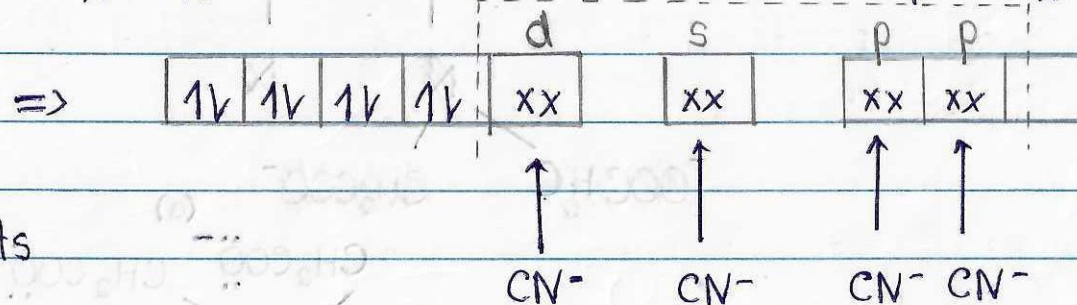 d s p p
=> 1l 1l 1l 1l xx xx xx xx
ts
CN⁻ CN⁻ CN⁻ CN⁻